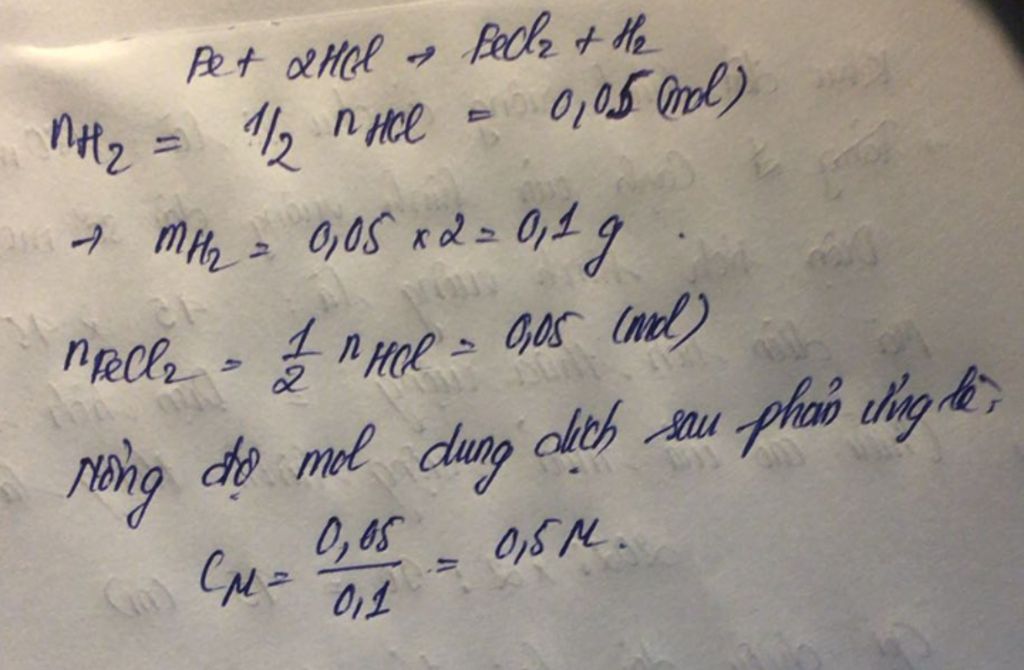 Fe + 2HCl → FeCl₂ + H₂
nH₂ = 1/2 nHCl = 0,05 (mol)
→ mH₂ = 0,05 x 2 = 0,1 g.
nFeCl₂ = 1/2 nHCl = 0,05 (mol)
Nồng độ mol dung dịch sau phản ứng là:
CM = 0,05/0,1 = 0,5 M.